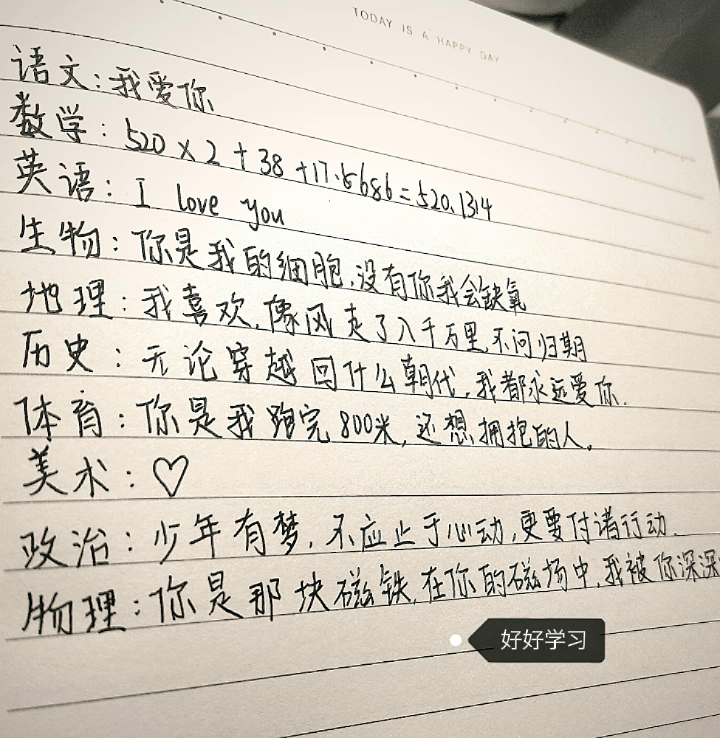 TODAY IS A HAPPY DAY
语文：我爱你
数学：520×2+38+17.5686=520.1314
英语：I love you
生物：你是我的细胞,没有你我会缺氧
地理：我喜欢,像风走了八千万里,不问归期
历史：无论穿越回什么朝代,我都永远爱你.
体育：你是我跑完800米,还想拥抱的人。
美术：♡
政治：少年有梦,不应止于心动,更要付诸行动.
物理：你是那块磁铁,在你的磁场中,我被你深深
好好学习